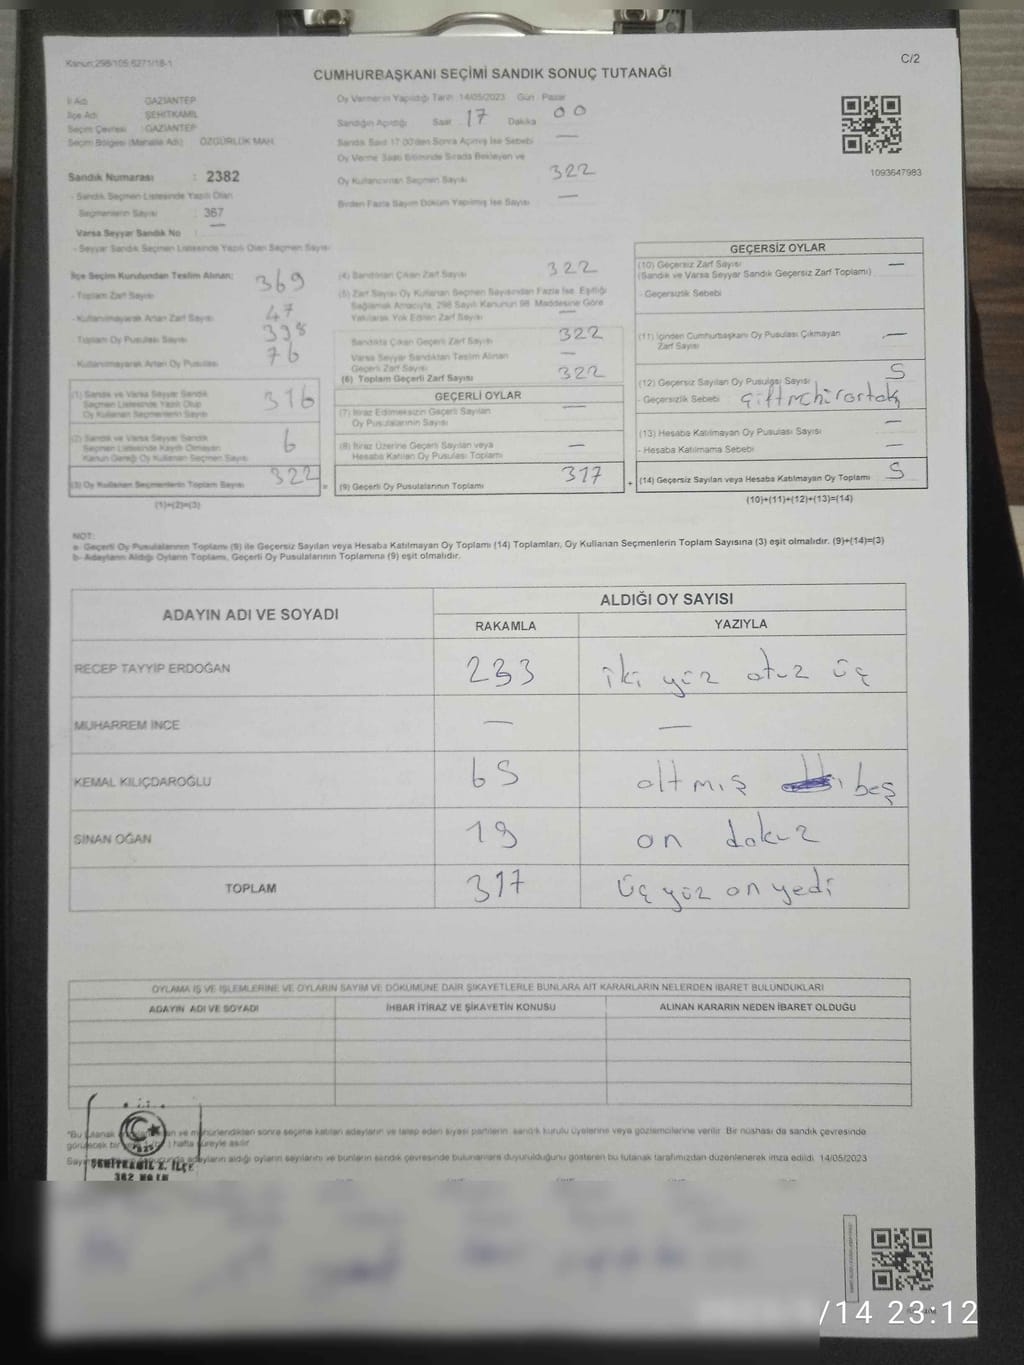 Kanun:298/105;6271/18-1
C/2
CUMHURBAŞKANI SEÇİMİ SANDIK SONUÇ TUTANAĞI
İl Adı : GAZİANTEP
İlçe Adı : ŞEHİTKAMİL
Seçim Çevresi : GAZİANTEP
Seçim Bölgesi (Mahalle Adı) : ÖZGÜRLÜK MAH.
Sandık Numarası : 2382
- Sandık Seçmen Listesinde Yazılı Olan
Seçmenlerin Sayısı : 367
Varsa Seyyar Sandık No : —
- Seyyar Sandık Seçmen Listesinde Yazılı Olan Seçmen Sayısı
Oy Vermenin Yapıldığı Tarih :14/05/2023 Gün : Pazar
Sandığın Açıldığı Saat : 17 Dakika : 00
Sandık Saat 17.00'den Sonra Açılmış İse Sebebi —
Oy Verme Saati Bitiminde Sırada Bekleyen ve
Oy Kullandırılan Seçmen Sayısı 322
Birden Fazla Sayım Döküm Yapılmış İse Sayısı —
1093647983
İlçe Seçim Kurulundan Teslim Alınan;
- Toplam Zarf Sayısı 369
- Kullanılmayarak Artan Zarf Sayısı 47
- Toplam Oy Pusulası Sayısı 398
- Kullanılmayarak Artan Oy Pusulası 76
(1) Sandık ve Varsa Seyyar Sandık
Seçmen Listesinde Yazılı Olup
Oy Kullanan Seçmenlerin Sayısı 316
(2) Sandık ve Varsa Seyyar Sandık
Seçmen Listesinde Kayıtlı Olmayan
Kanun Gereği Oy Kullanan Seçmen Sayısı 6
(3) Oy Kullanan Seçmenlerin Toplam Sayısı 322 =
(1)+(2)=(3)
(4) Sandıktan Çıkan Zarf Sayısı 322
(5) Zarf Sayısı Oy Kullanan Seçmen Sayısından Fazla İse, Eşitliği
Sağlamak Amacıyla, 298 Sayılı Kanunun 98. Maddesine Göre
Yakılarak Yok Edilen Zarf Sayısı —
Sandıkta Çıkan Geçerli Zarf Sayısı 322
Varsa Seyyar Sandıktan Teslim Alınan
Geçerli Zarf Sayısı —
(6) Toplam Geçerli Zarf Sayısı 322
GEÇERLİ OYLAR
(7) İtiraz Edilmeksizin Geçerli Sayılan
Oy Pusulalarının Sayısı —
(8) İtiraz Üzerine Geçerli Sayılan veya
Hesaba Katılan Oy Pusulası Toplamı —
(9) Geçerli Oy Pusulalarının Toplamı 317 +
GEÇERSİZ OYLAR
(10) Geçersiz Zarf Sayısı —
(Sandık ve Varsa Seyyar Sandık Geçersiz Zarf Toplamı)
- Geçersizlik Sebebi
(11) İçinden Cumhurbaşkanı Oy Pusulası Çıkmayan
Zarf Sayısı —
(12) Geçersiz Sayılan Oy Pusulası Sayısı 5
- Geçersizlik Sebebi
(13) Hesaba Katılmayan Oy Pusulası Sayısı —
- Hesaba Katılmama Sebebi —
(14) Geçersiz Sayılan veya Hesaba Katılmayan Oy Toplamı 5
(10)+(11)+(12)+(13)=(14)
NOT:
a- Geçerli Oy Pusulalarının Toplamı (9) ile Geçersiz Sayılan veya Hesaba Katılmayan Oy Toplamı (14) Toplamları, Oy Kullanan Seçmenlerin Toplam Sayısına (3) eşit olmalıdır. (9)+(14)=(3)
b- Adayların Aldığı Oyların Toplamı, Geçerli Oy Pusulalarının Toplamına (9) eşit olmalıdır.
ADAYIN ADI VE SOYADI
ALDIĞI OY SAYISI
RAKAMLA YAZIYLA
RECEP TAYYİP ERDOĞAN 233 iki yüz otuz üç
MUHARREM İNCE — —
KEMAL KILIÇDAROĞLU 65 altmış beş
SİNAN OĞAN 19 on dokuz
TOPLAM 317 üç yüz on yedi
OYLAMA İŞ VE İŞLEMLERİNE VE OYLARIN SAYIM VE DÖKÜMÜNE DAİR ŞİKAYETLERLE BUNLARA AİT KARARLARIN NELERDEN İBARET BULUNDUKLARI
ADAYIN ADI VE SOYADI İHBAR İTİRAZ VE ŞİKAYETİN KONUSU ALINAN KARARIN NEDEN İBARET OLDUĞU
*Bu tutanak ve mühürlendikten sonra seçime katılan adayların ve talep eden siyasi partilerin, sandık kurulu üyelerine veya gözlemcilerine verilir. Bir nüshası da sandık çevresinde
görülecek bir hafta süreyle asılır.
adayların aldığı oyların sayılarını ve bunların sandık çevresinde bulunanlara duyurulduğunu gösteren bu tutanak tarafımızdan düzenlenerek imza edildi. 14/05/2023
ŞEHİTKAMİL 2. İLÇE
/14 23:12